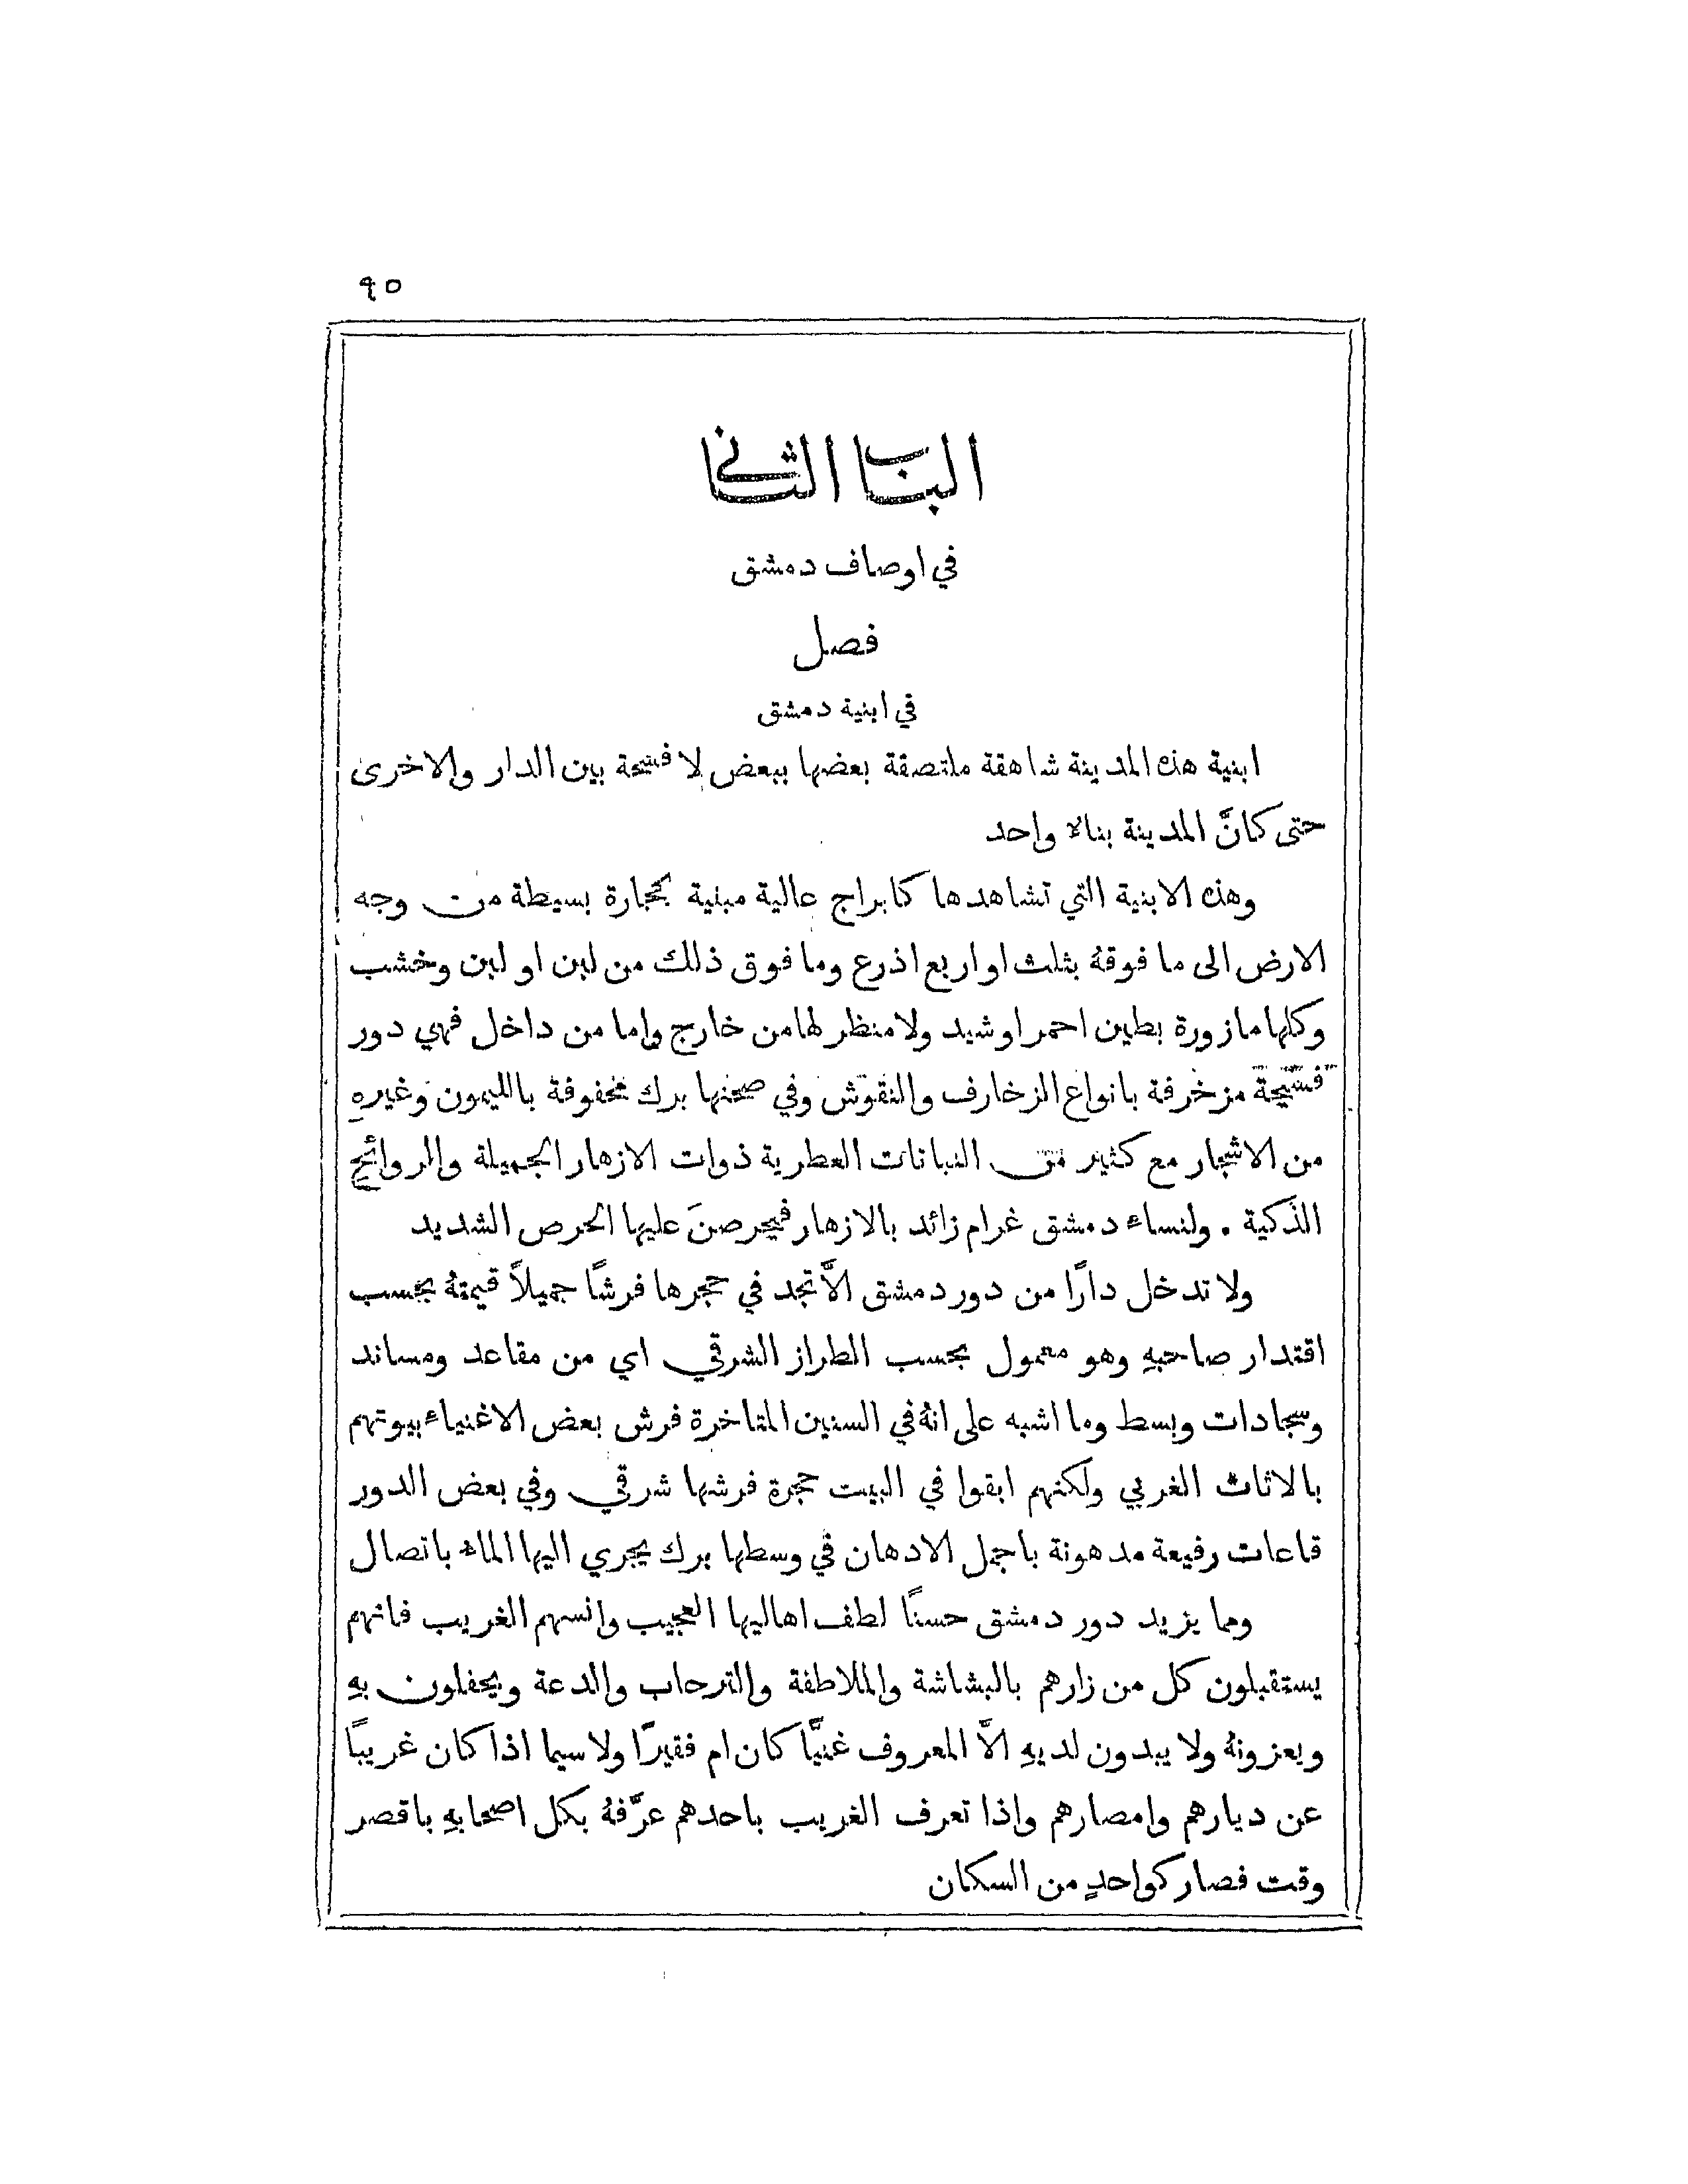 ٩٥
الباب الثاني
في اوصاف دمشق
فصل
في ابنية دمشق
ابنية هذه المدينة شاهقة ملتصقة بعضها ببعض لا فسحة بين الدار والاخرى
حتى كانَّ المدينة بناء واحد
وهذه الابنية التي تشاهدها كابراج عالية مبنية بحجارة بسيطة من وجه
الارض الى ما فوقهُ بثلث او اربع اذرع وما فوق ذلك من لبن او لبن وخشب
وكلها مازورة بطين احمر او شيد ولا منظر لها من خارج واما من داخل فهي دور
فسيحة مزخرفة بانواع الزخارف والنقوش وفي صحنها برك محفوفة بالليمون وغيرهِ
من الاشجار مع كثير من النباتات العطرية ذوات الازهار الجميلة والروائح
الذكية . ولنساء دمشق غرام زائد بالازهار فيحرصنَ عليها الحرص الشديد
ولا تدخل دارًا من دور دمشق الَّا تجد في حجرها فرشًا جميلاً قيمتهُ بحسب
اقتدار صاحبهِ وهو معمول بحسب الطراز الشرقي اي من مقاعد ومساند
وسجادات وبسط وما اشبه على انهُ في السنين المتاخرة فرش بعض الاغنياء بيوتهم
بالاثاث الغربي ولكنهم ابقوا في البيت حجرة فرشها شرقي وفي بعض الدور
قاعات رفيعة مدهونة باجمل الادهان في وسطها برك يجري اليها الماء باتصال
ومما يزيد دور دمشق حسنًا لطف اهاليها العجيب وانسهم الغريب فانهم
يستقبلون كل من زارهم بالبشاشة والملاطفة والترحاب والدعة ويحفلون بهِ
ويعزونهُ ولا يبدون لديهِ الَّا المعروف غنيًّا كان ام فقيرًا ولا سيما اذا كان غريبًا
عن ديارهم وامصارهم واذا تعرف الغريب باحدهم عرَّفهُ بكل اصحابهِ باقصر
وقت فصار كواحدٍ من السكان